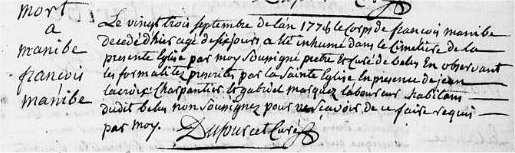 mort
a
manibe
françois
manibe
Le vingt trois septembre de l'an 1774 le corps de françois manibe
decedé d'hier agé de six jours a été inhumé dans le Cimetiere de la
presente Eglise par moy soussigné pretre et Curé de belin En observant
les formalités prescrites par la Sainte Eglise En presence de jean
lacroix Charpentier et gabriel marquez laboureur habitans
dudit belin non soussignez pour ne sçavoir de ce faire requis
par moy. Dufourcet Curé